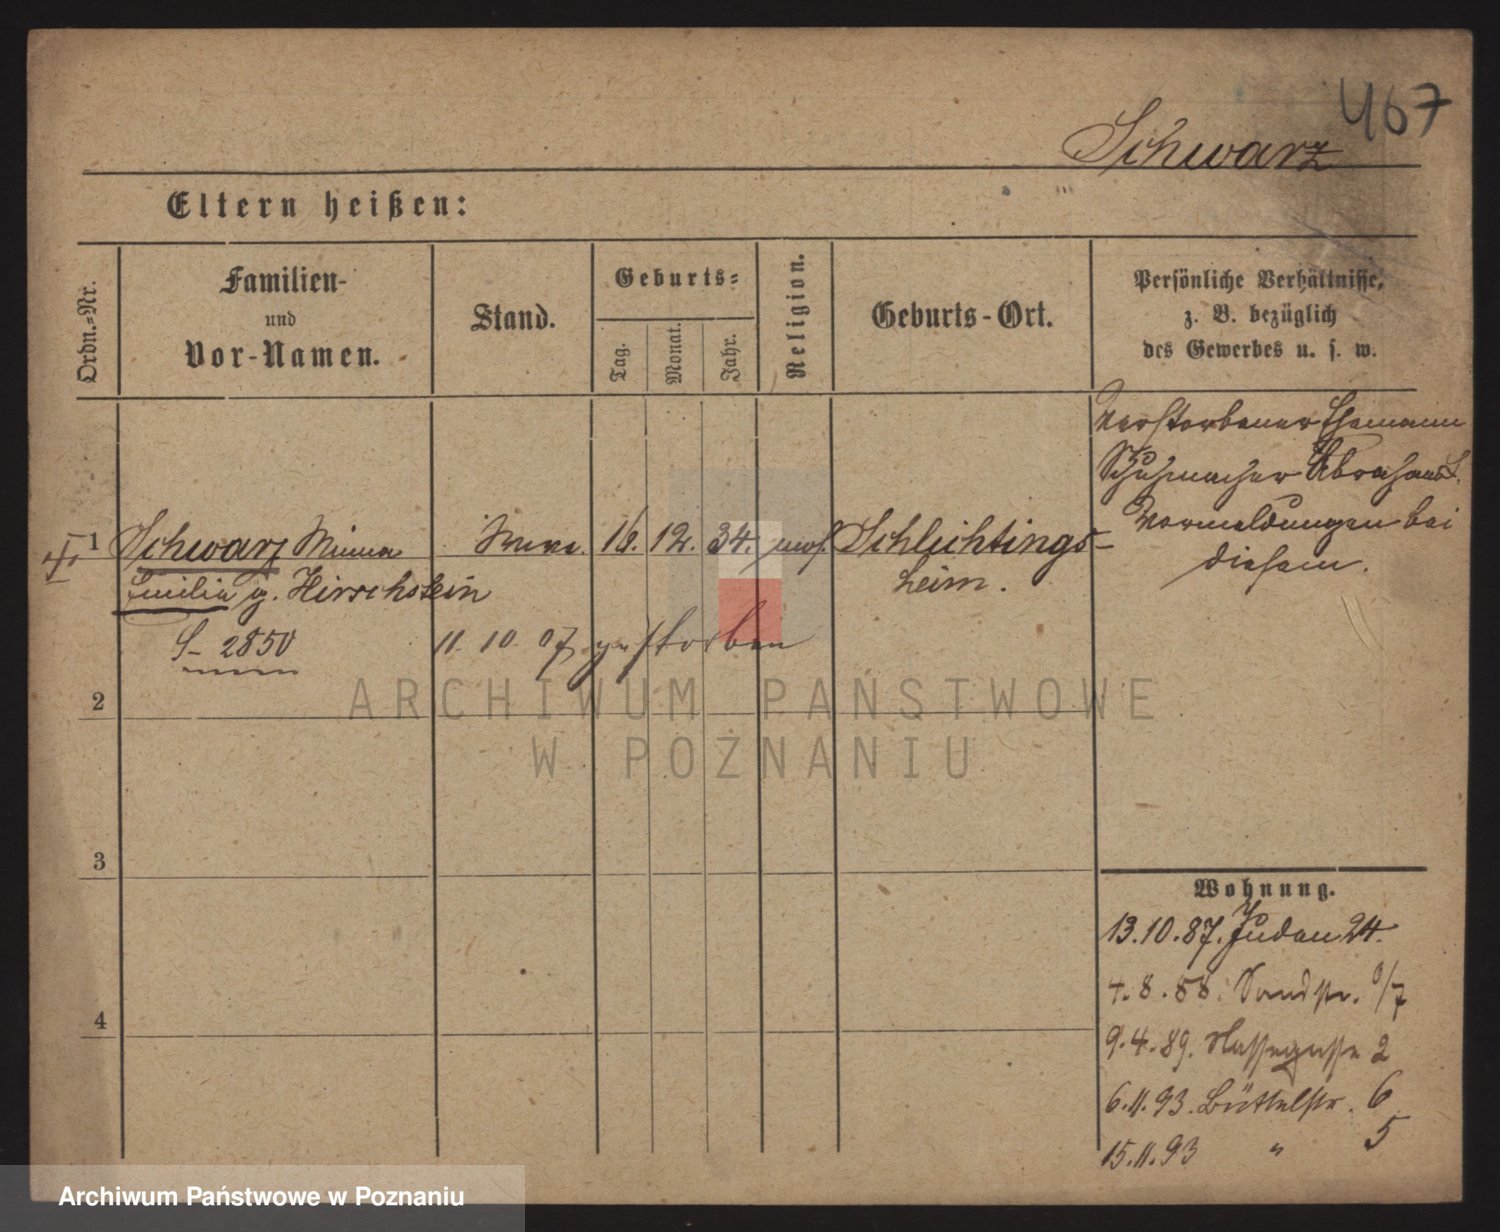 467
Schwarz
Eltern heißen:
Ordn.-Nr.
Familien-
und
Vor-Namen.
Stand.
Geburts-
Tag.
Monat.
Jahr.
Religion.
Geburts-Ort.
Persönliche Verhältnisse,
z. B. bezüglich
des Gewerbes u. s. w.
Verstorbener Ehemann
Schuhmacher Abraham S.
Vormeldungen bei
diesem.
1 Schwarz Minna Wwe. 16. 12. 34. mos. Schlichtings-
Emilia g. Hirschstein heim.
S- 2850 11. 10. 07 gestorben
2
3
4
Wohnung.
13.10.87. Juden 24.
4.8.88. Sandstr. 6/7
9.4.89. Nassegasse 2
6.11.93. Büttelstr. 6
15.11.93 " 5
ARCHIWUM PAŃSTWOWE
W POZNANIU
Archiwum Państwowe w Poznaniu